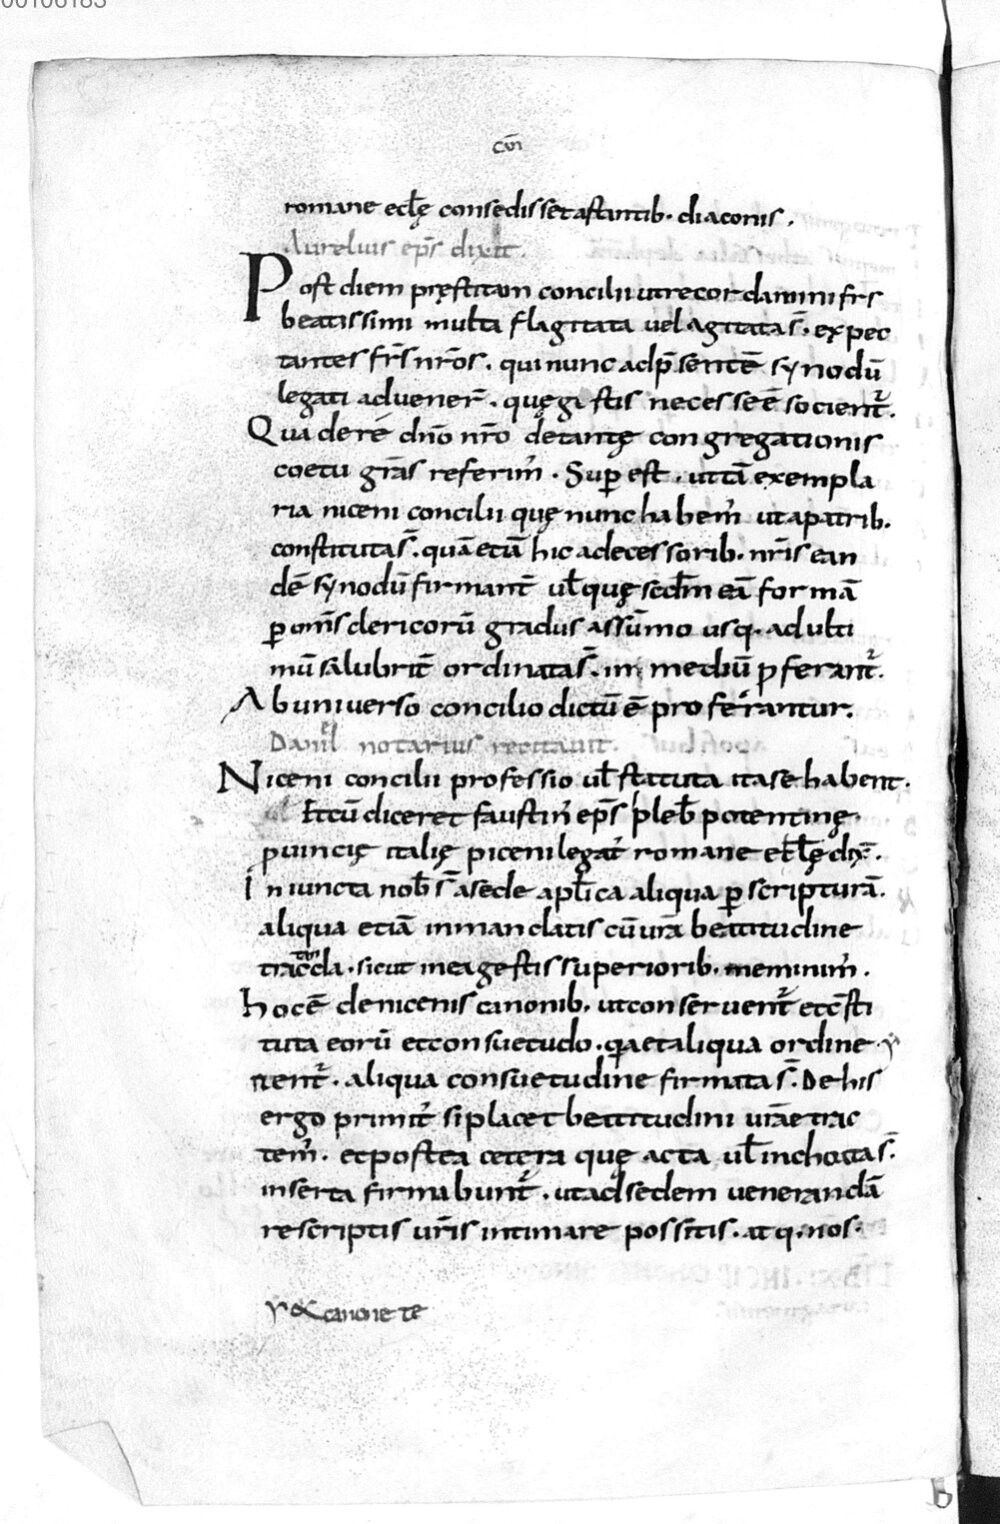 00106183
cvii
romane ecl̄ę consedisset astantib· diaconis.
Aurelius ep̄s dixit.
Post diem pręstitum concilii ut recordamini frs
beatissimi multa flagitata vel agitata s̄· expec
tantes fr̄s nr̄os· qui nunc ad p̄sentē synodū
legati advener̄· quę gistis necesse ē socient̄.
Qua de re dn̄o nr̄o de tantę congregationis
coetu grās referim̄· Sup est· ut tā exempla
ria niceni concilii quę nunc habem̄ ut a patrib.
constituta s̄· quā etiā hic adecessorib· nr̄is ean
dē synodū firmant̄ ul̄ quę scdm̄ eā formā
p om̄s clericorū gradus assūmo usq· ad ulti
mū salubrit̄ ordinata s̄· in mediū pferant̄.
Ab universo concilio dictū ē proferantur.
Danil̄ notarius recitavit.
Niceni concilii professio ul̄ statuta ita se habent.
Et cū diceret faustin̄ ep̄s pleb̄ potentinę·
puincię italię piceni legat̄ romane ecl̄ę dx̄·
Iniuncta nob̄ s̄ a sede apl̄ica aliqua p scripturā.
aliqua etiā in mandatis cū urā beatitudine
tractanda· sicut in ea gestis superiorib· meminim̄.
hoc ē de nicenis canonib· ut conservent̄ et cōsti
tuta eorū et consuetudo· q̄a et aliqua ordine
nent̄· aliqua consuetudine firmata s̄· De his
ergo primit̄ si placet beatitudini urāe trac
tem̄· et postea cetera quę acta ul̄ inchoata s̄
inserta firmabunt̄· ut ad sedem venerandā
rescriptis ur̄is intimare possitis· atq· nos·
& canone te